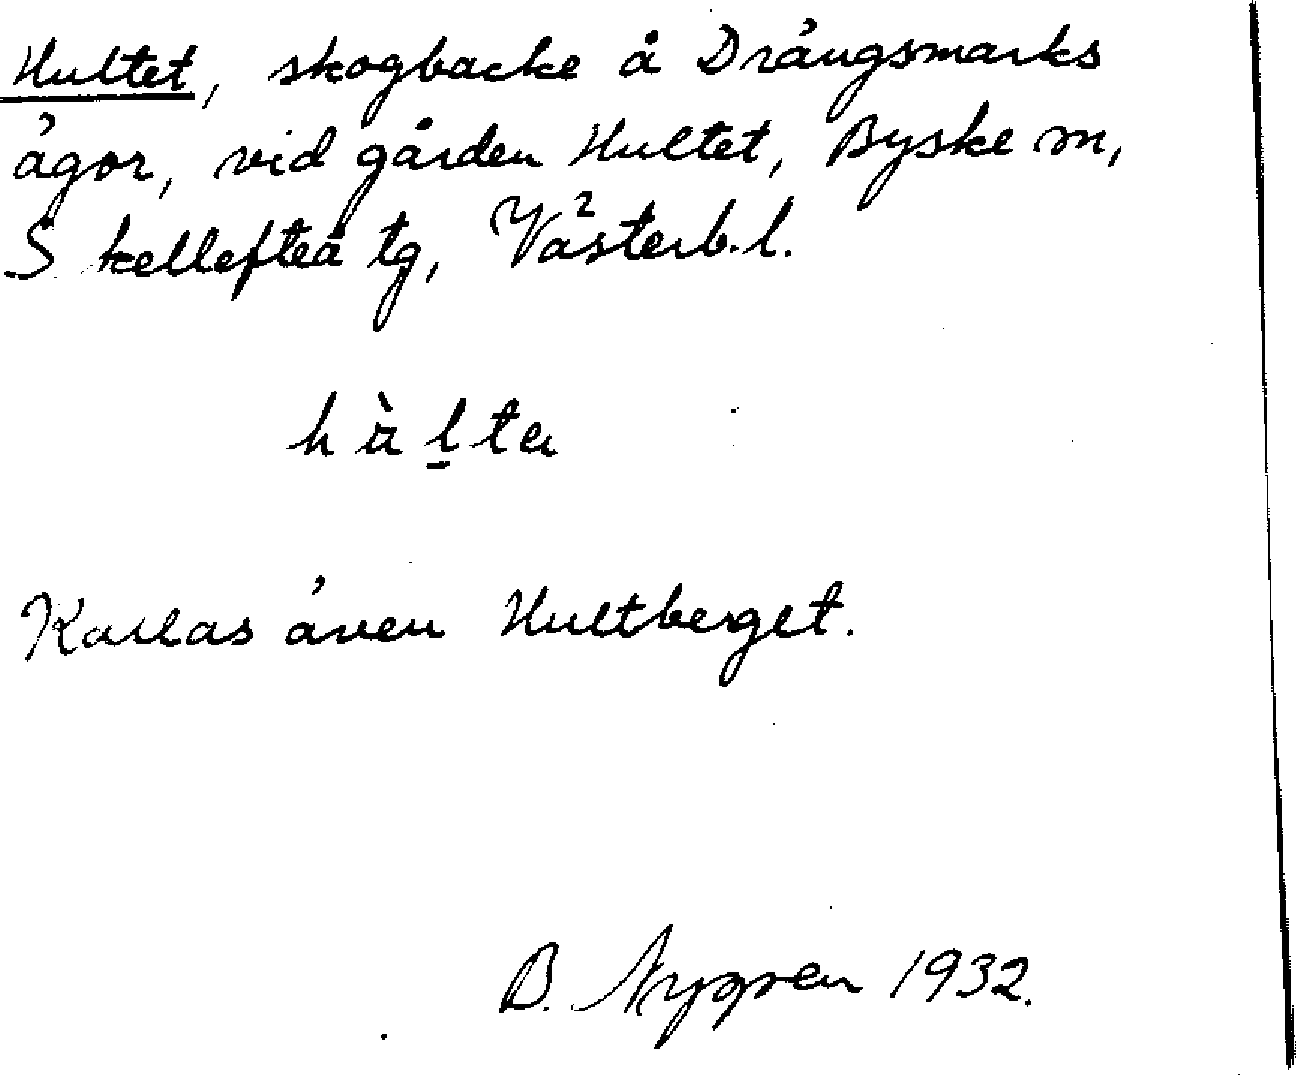 Hultet, skogbacke å Drängsmarks
ägor, vid gården Hultet, Byske sn,
Skellefteå tg, Västerb.l.
Kallas även Hultberget.
B. Nygren 1932.